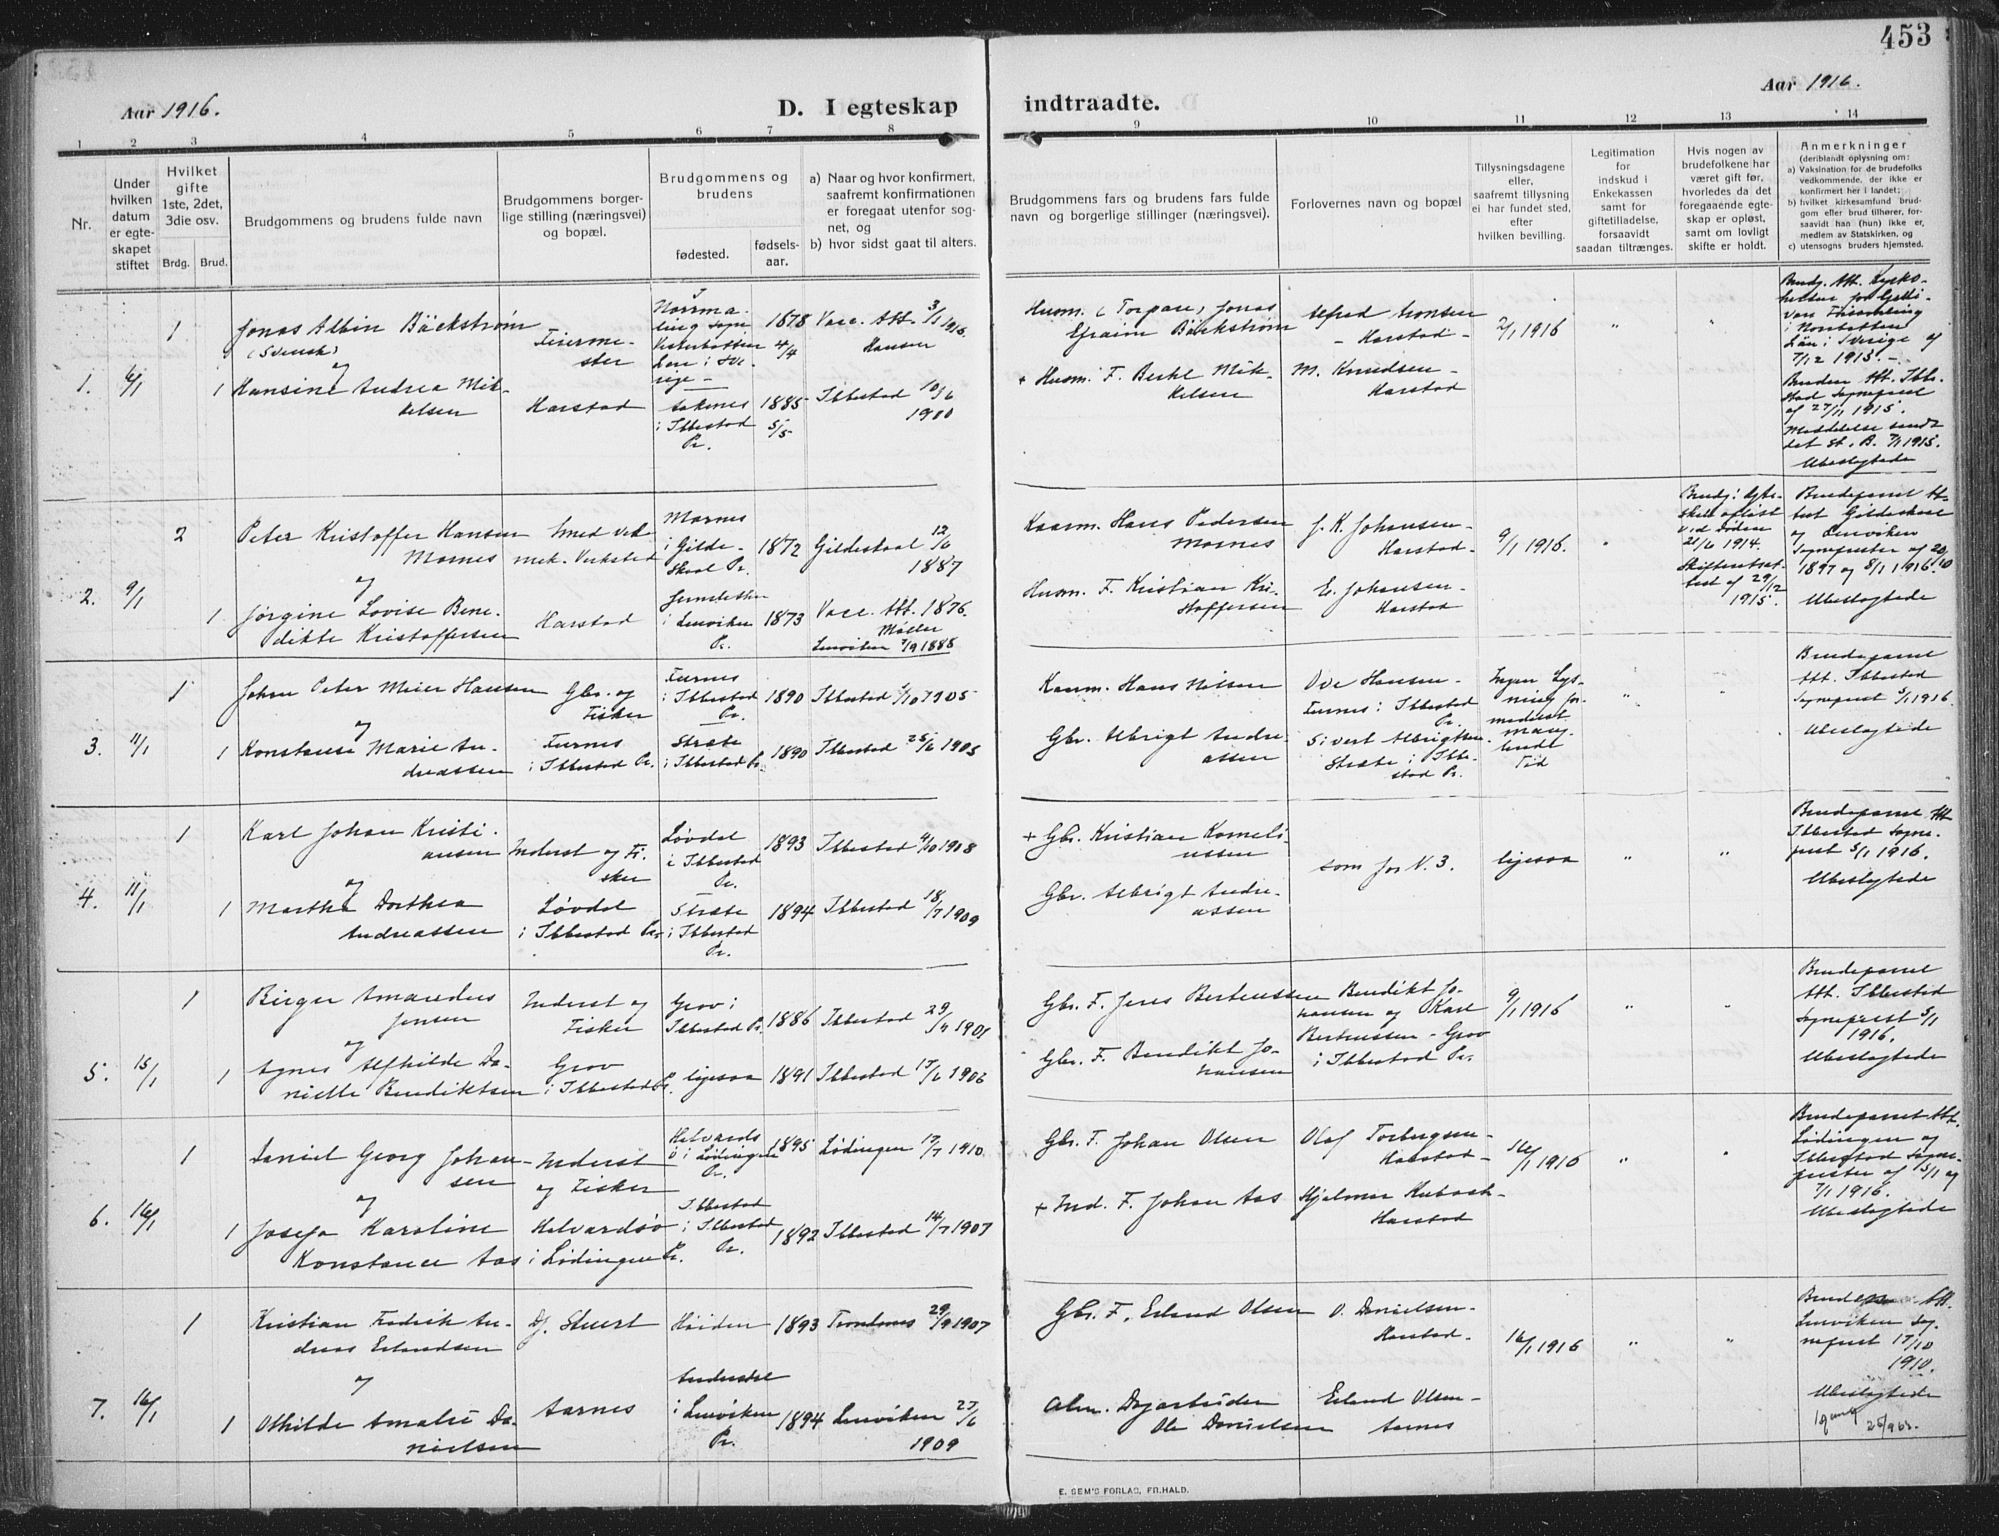 453
Aar 1916.
D. I egteskap
indtraadte.
Aar 1916.
1 2 3 4 5 6 7 8
9 10 11 12 13 14
Nr.
Under hvilken datum er egteskapet stiftet
Hvilket gifte 1ste, 2det, 3die osv.
Brdg. Brud.
Brudgommens og brudens fulde navn
Brudgommens borgerlige stilling (næringsvei) og bopæl.
Brudgommens og brudens
fødested.
fødselsaar.
a) Naar og hvor konfirmert, saafremt konfirmationen er foregaat utenfor sognet, og
b) hvor sidst gaat til alters.
Brudgommens fars og brudens fars fulde navn og borgerlige stillinger (næringsvei).
Forlovernes navn og bopæl
Tillysningsdagene eller, saafremt tillysning ei har fundet sted, efter hvilken bevilling.
Legitimation for indskud i Enkekassen samt for giftetilladelse, forsaavidt saadan tiltrænges.
Hvis nogen av brudefolkene har været gift før, hvorledes da det foregaaende egteskap er opløst, samt om lovligt skifte er holdt.
Anmerkninger
(deriblandt oplysning om:
a) Vaksination for de brudefolks vedkommende, der ikke er konfirmert her i landet;
b) hvilket kirkesamfund brudgom eller brud tilhører, forsaavidt han (hun) ikke er, medlem av Statskirken, og
c) utensogns bruders hjemsted.
1. 6/1
1
Jonas Albin Bäckström
(Svensk)
og
1
Hansine Andrea Mikkelsen
Feiermester
Harstad
1878 4/4
Vacc. Att. 3/1 1916
Hansen
i Ibbestad Pr.
1885 5/5
Ibbestad 10/6 1900
Husm. (Torpare) Jonas Efraim Bäckström
+ Husm. F. Berhl Mikkelsen
Harstad
M. Knudsen - Harstad
2/1 1916
"
i Sverige af 7/12 1915. -
Bruden Att. Ibbestad Sogneprest af 27/11 1915.
Meddelelse sendt
Ubeslegtede
2. 9/1
2
Peter Kristoffer Hansen Mornes
og
1
Jørgine Lovise Benedikte Kristoffersen
Smed ved mek. Verksted
Harstad
Mornes i Gildeskaal Pr.
1872
Gildeskaal 12/6 1887
i Lenviken Pr.
1873
Vacc. Att. 1876. Møller
Lenviken 7/9 1888
Kaarm. Hans Pedersen Mornes
Husm. F. Kristian Kristoffersen
J. K. Johansen - Harstad -
E. Johansen - Harstad
9/1 1916.
Brudg: Egteskab opløst ved Døden 21/6 1914.
Skifteretsattest af 29/12 1915.
Brudeparret Attest Gildeskaal og Lenviken Sogneprester af 20/10 1897 og 8/1 1916.
Ubeslegtede
3. 11/1
1
Johan Peter Meier Hansen
og
1
Konstanse Marie Andreassen
Gbr. og Fisker
Furnes i Ibbestad Pr.
Furnes i Ibbestad Pr.
1890
Ibbestad 1/10 1905
Stræte i Ibbestad Pr.
1890
Ibbestad 25/6 1905
Kaarm. Hans Nilsen
Gbr. Albrigt Andreassen
Ove Hansen - Furnes i Ibbestad Pr.
Sivert Albrigtsen. Stræte i Ibbestad Pr.
Ingen Lysning formedelst manglende Tid
"
Brudeparret Att. Ibbestad Sogneprest 5/1 1916.
Ubeslegtede
4. 11/1
1
Karl Johan Kristiansen
og
1
Martha Dorthea Andreassen
Inderst og Fisker
Løvdal i Ibbestad Pr.
Løvdal i Ibbestad Pr.
1893
Ibbestad 4/10 1908
Stræte i Ibbestad Pr.
1894
Ibbestad 18/7 1909
+ Gbr. Kristian Korneliussen
Gbr. Albrigt Andreassen
som for N. 3.
ligesaa
"
"
Brudeparret Att Ibbestad Sogneprest 5/1 1916.
Ubeslegtede
5. 15/1
1
Birger Amandus Jensen
og
1
Agnes Alfhilde Danielle Bendiktsen
Inderst og Fisker
Grov i Ibbestad Pr.
Grov i Ibbestad Pr.
1886
Ibbestad 29/9 1901
ligesaa
1891
Ibbestad 17/6 1906
Gbr. F. Jens Berteussen
Gbr. F. Bendikt Johansen
Bendikt Johansen og Karl Berteussen - Grov i Ibbestad Pr.
9/1 1916
"
"
Brudeparret Att. Ibbestad Sogneprest 5/1 1916.
Ubeslegtede
6. 16/1
1
Daniel Georg Johansen
og
1
Josefa Karoline Konstance Aas
Inderst og Fisker
Halvardsö i Lödingen Pr.
Halvardsö i Lödingen Pr.
1895
Lödingen 17/7 1910.
Ibbestad i Ibbestad Pr.
1892
Ibbestad 14/7 1907
Gbr. F. Johan Olsen
+ Ind. F. Johan Aas
Olaf Torbergsen - Harstad -
Hjalmar - Harstad
16/1 1916
"
"
Brudeparret Att. Lödingen og Ibbestad Sogneprester af 15/1 og 7/1 1916.
Ubeslegtede
7. 16/1
1
Kristian Fredrik Andreas Erlandsen
og
1
Othilde Amalie Danielsen
Dj. Stuert
Aarnes
1893
Trondenes 29/9 1907
i Lenviken Pr.
1894
Lenviken 27/6 1909
Gbr. F. Erland Olsen
Ole Danielsen
O. Danielsen - Harstad -
Erland Olsen - Aarnes
16/1 1916
"
"
Att. Lenviken Sogneprest 17/10 1910.
Ubeslegtede
E. SEM'S FORLAG, FR.HALD.